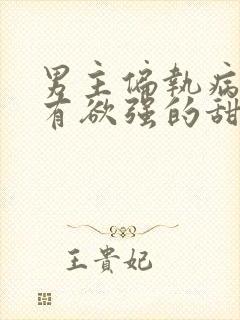 男主偏執病
有欲强的甜
王貴妃